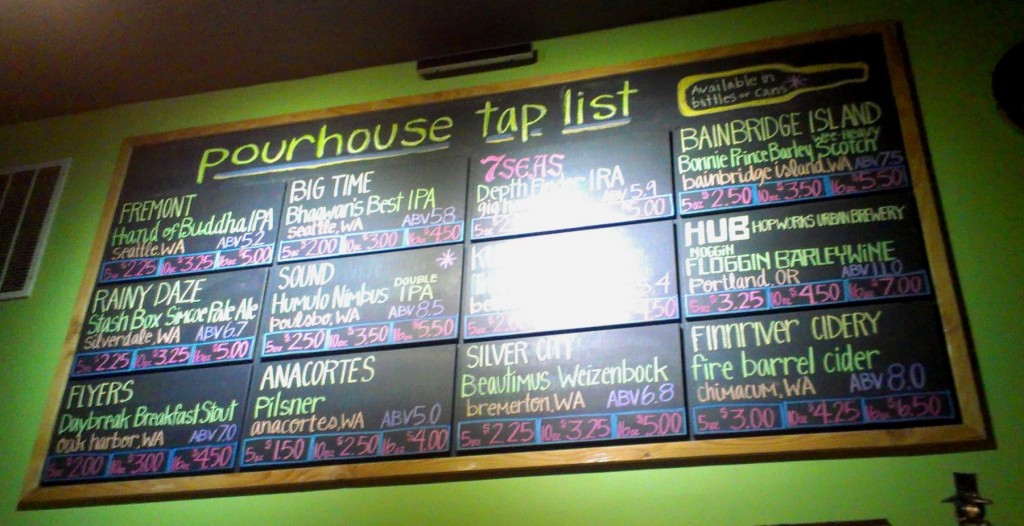 pourhouse tap list
Available in
bottles or cans *
FREMONT
Hand of Buddha IPA
Seattle, WA ABV 5.2
5oz $2.25 10oz $3.25 16oz $5.00
RAINY DAZE
Stash Box Simcoe Pale Ale
Silverdale, WA ABV 6.7
5oz $2.25 10oz $3.25 16oz $5.00
FLYERS
Daybreak Breakfast Stout
oak harbor, WA ABV 7.0
5oz $2.00 10oz $3.00 16oz $4.50
BIG TIME
Bhagwan's Best IPA
seattle, WA ABV 5.8
5oz $2.00 10oz $3.00 16oz $4.50
SOUND *
Humulo Nimbus DOUBLE IPA
Poulsbo, WA ABV 8.5
5oz $2.50 10oz $3.50 16oz $5.50
ANACORTES
Pilsner
anacortes, WA ABV 5.0
5oz $1.50 10oz $2.50 16oz $4.00
7 SEAS
Depth IRA
gig 5.9
5oz 5.00
5oz 4.50
SILVER CITY
Beautimus Weizenbock
bremerton, WA ABV 6.8
5oz $2.25 10oz $3.25 16oz $5.00
BAINBRIDGE ISLAND
Bonnie Prince Barley wee-heavy Scotch
bainbridge island, WA ABV 7.5
5oz $2.50 10oz $3.50 16oz $5.50
HUB HOPWORKS URBAN BREWERY
NOGGIN
FLOGGIN BARLEYWINE
Portland, OR ABV 11.0
5oz $3.25 10oz $4.50 16oz $7.00
FINNRIVER CIDERY
fire barrel cider
chimacum, WA ABV 8.0
5oz $3.00 10oz $4.25 16oz $6.50